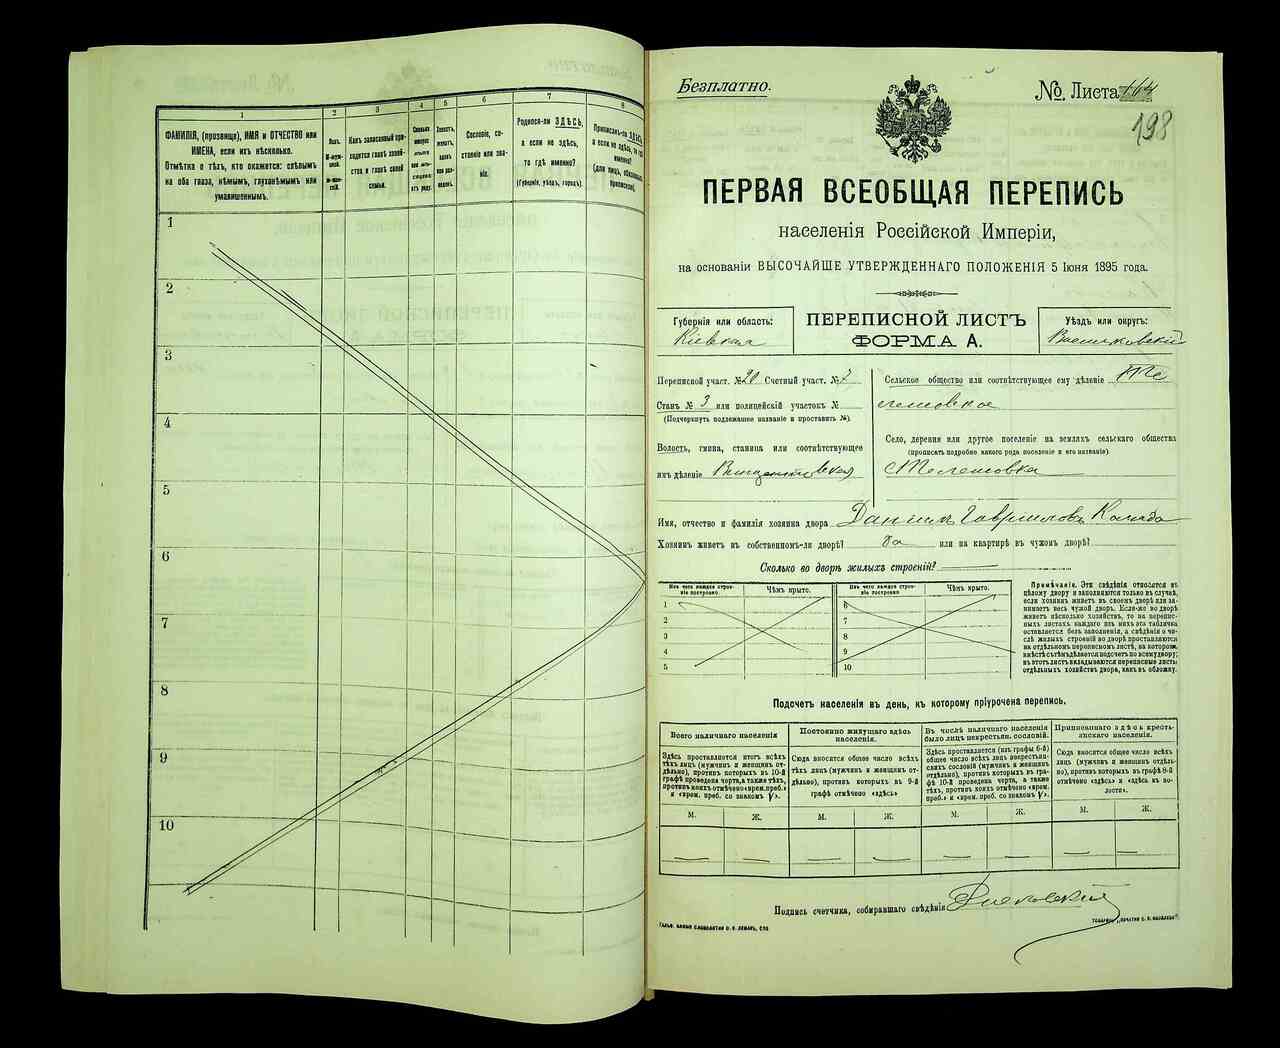 1
2
3
4
5
6
7
8
ФАМИЛІЯ, (прозвище), ИМЯ и ОТЧЕСТВО или
ИМЕНА, если ихъ нѣсколько.
Отмѣтка о тѣхъ, кто окажется: слѣпымъ
на оба глаза, нѣмымъ, глухонѣмымъ или
умалишеннымъ.
Полъ.
М-муж-
ской.
Ж-жен-
скій.
Какъ записанный при-
ходится главѣ хозяй-
ства и главѣ своей
семьи.
Сколько
минуло
лѣтъ
или мѣ-
сяцевъ
отъ роду.
Холостъ,
женатъ,
вдовъ
или раз-
веденъ.
Сословіе, со-
стояніе или зва-
ніе.
Родился-ли ЗДѢСЬ,
а если не здѣсь,
то гдѣ именно?
(Губернія, уѣздъ, городъ).
Приписанъ-ли ЗДѢСЬ,
а если не здѣсь, то гдѣ
именно?
(для лицъ, обязанныхъ
припиской).
1
2
3
4
5
6
7
8
9
10
Безплатно.
№ Листа 164
198
ПЕРВАЯ ВСЕОБЩАЯ ПЕРЕПИСЬ
населенія Россійской Имперіи,
на основаніи ВЫСОЧАЙШЕ УТВЕРЖДЕННАГО ПОЛОЖЕНІЯ 5 Іюня 1895 года.
Губернія или область:
Кіевская
ПЕРЕПИСНОЙ ЛИСТЪ
ФОРМА А.
Уѣздъ или округъ:
Васильковскій
Переписной участ. № 20 Счетный участ. № 7
Станъ № 3 или полицейскій участокъ №
(Подчеркнуть подлежащее названіе и проставить №).
Волость, гмина, станица или соотвѣтствующее
имъ дѣленіе Винцентовская
Сельское общество или соотвѣтствующее ему дѣленіе Те
лешовское
Село, деревня или другое поселеніе на земляхъ сельскаго общества
(прописать подробно какого рода поселеніе и его названіе)
с Телешовка
Имя, отчество и фамилія хозяина двора Даніилъ Гавриловъ Коляда
Хозяинъ живетъ въ собственномъ-ли дворѣ? Да или на квартирѣ въ чужомъ дворѣ?
Сколько во дворѣ жилыхъ строеній?
Изъ чего каждое строе-
ніе построено.
Чѣмъ крыто.
Изъ чего каждое строе-
ніе построено
Чѣмъ крыто.
1
2
3
4
5
6
7
8
9
10
Примѣчаніе. Эти свѣдѣнія относятся къ
цѣлому двору и заполняются только въ случаѣ,
если хозяинъ живетъ въ своемъ дворѣ или за-
нимаетъ весь чужой дворъ. Если-же во дворѣ
живетъ нѣсколько хозяйствъ, то на перепис-
ныхъ листахъ каждаго изъ нихъ эта табличка
оставляется безъ заполненія, а свѣдѣнія о чи-
слѣ жилыхъ строеній во дворѣ проставляются
на отдѣльномъ переписномъ листѣ, на которомъ
вмѣстѣ съ тѣмъ дѣлается подсчетъ по всему двору;
въ этотъ листъ вкладываются переписные листы
отдѣльныхъ хозяйствъ двора, какъ въ обложку.
Подсчетъ населенія въ день, къ которому пріурочена перепись.
Всего наличнаго населенія
Здѣсь проставляется итогъ всѣхъ
тѣхъ лицъ (мужчинъ и женщинъ от-
дѣльно), противъ которыхъ въ 10-й
графѣ проведена черта, а также тѣхъ,
противъ коихъ отмѣчено «врем. преб.»
и «врем. преб. со знакомъ V».
Постоянно живущаго здѣсь
населенія.
Сюда вносится общее число всѣхъ
тѣхъ лицъ (мужчинъ и женщинъ от-
дѣльно), противъ которыхъ въ 9-й
графѣ отмѣчено «здѣсь»
Въ числѣ наличнаго населенія
было лицъ некрестьян. сословій.
Здѣсь проставляется (изъ графы 6-й)
общее число всѣхъ лицъ некрестьян-
скихъ сословій (мужчинъ и женщинъ
отдѣльно), противъ которыхъ въ гра-
фѣ 10-й проведена черта, а также
тѣхъ, противъ коихъ отмѣчено «врем.
преб.» и «врем. преб. со знакомъ V».
Приписаннаго здѣсь кресть-
янскаго населенія.
Сюда вносится общее число всѣхъ
лицъ (мужчинъ и женщинъ отдѣль-
но), противъ которыхъ въ графѣ 8-й
отмѣчено «здѣсь» и «здѣсь въ во-
лости».
М. Ж. М. Ж. М. Ж. М. Ж.
Подпись счетчика, собиравшаго свѣдѣнія